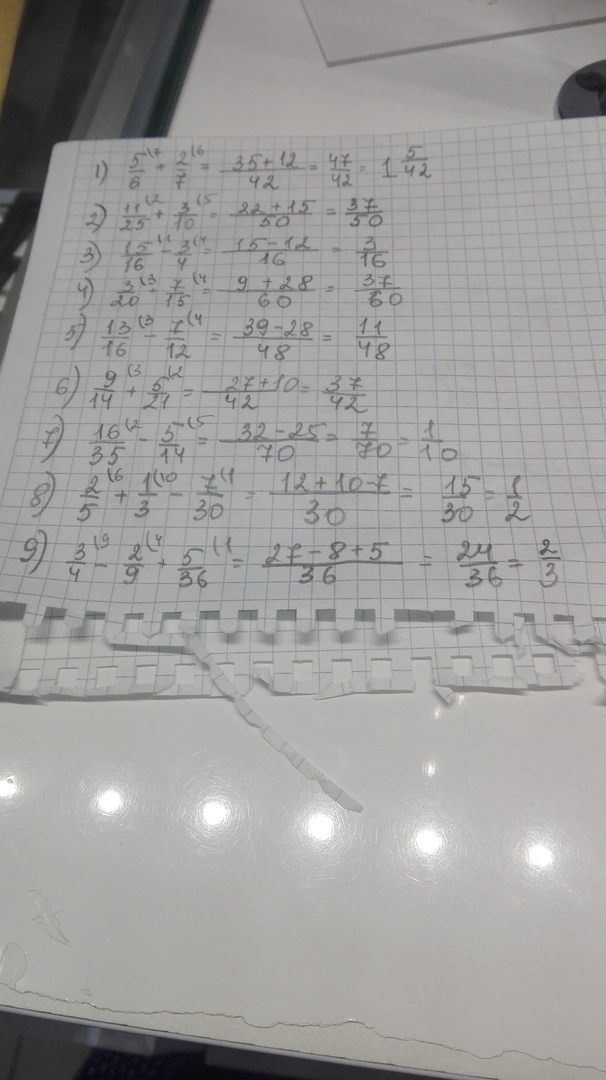 1) 5/6 (7 + 2/7 (6 = 35+12/42 = 47/42 = 1 5/42
2) 11/25 (2 + 3/10 (5 = 22+15/50 = 37/50
3) 15/16 (1 - 3/4 (4 = 15-12/16 = 3/16
4) 3/20 (3 + 7/15 (4 = 9+28/60 = 37/60
5) 13/16 (3 - 7/12 (4 = 39-28/48 = 11/48
6) 9/14 (3 + 5/21 (2 = 27+10/42 = 37/42
7) 16/35 (2 - 5/14 (5 = 32-25/70 = 7/70 = 1/10
8) 2/5 (6 + 1/3 (10 - 7/30 (1 = 12+10-7/30 = 15/30 = 1/2
9) 3/4 (9 - 2/9 (4 + 5/36 (1 = 27-8+5/36 = 24/36 = 2/3